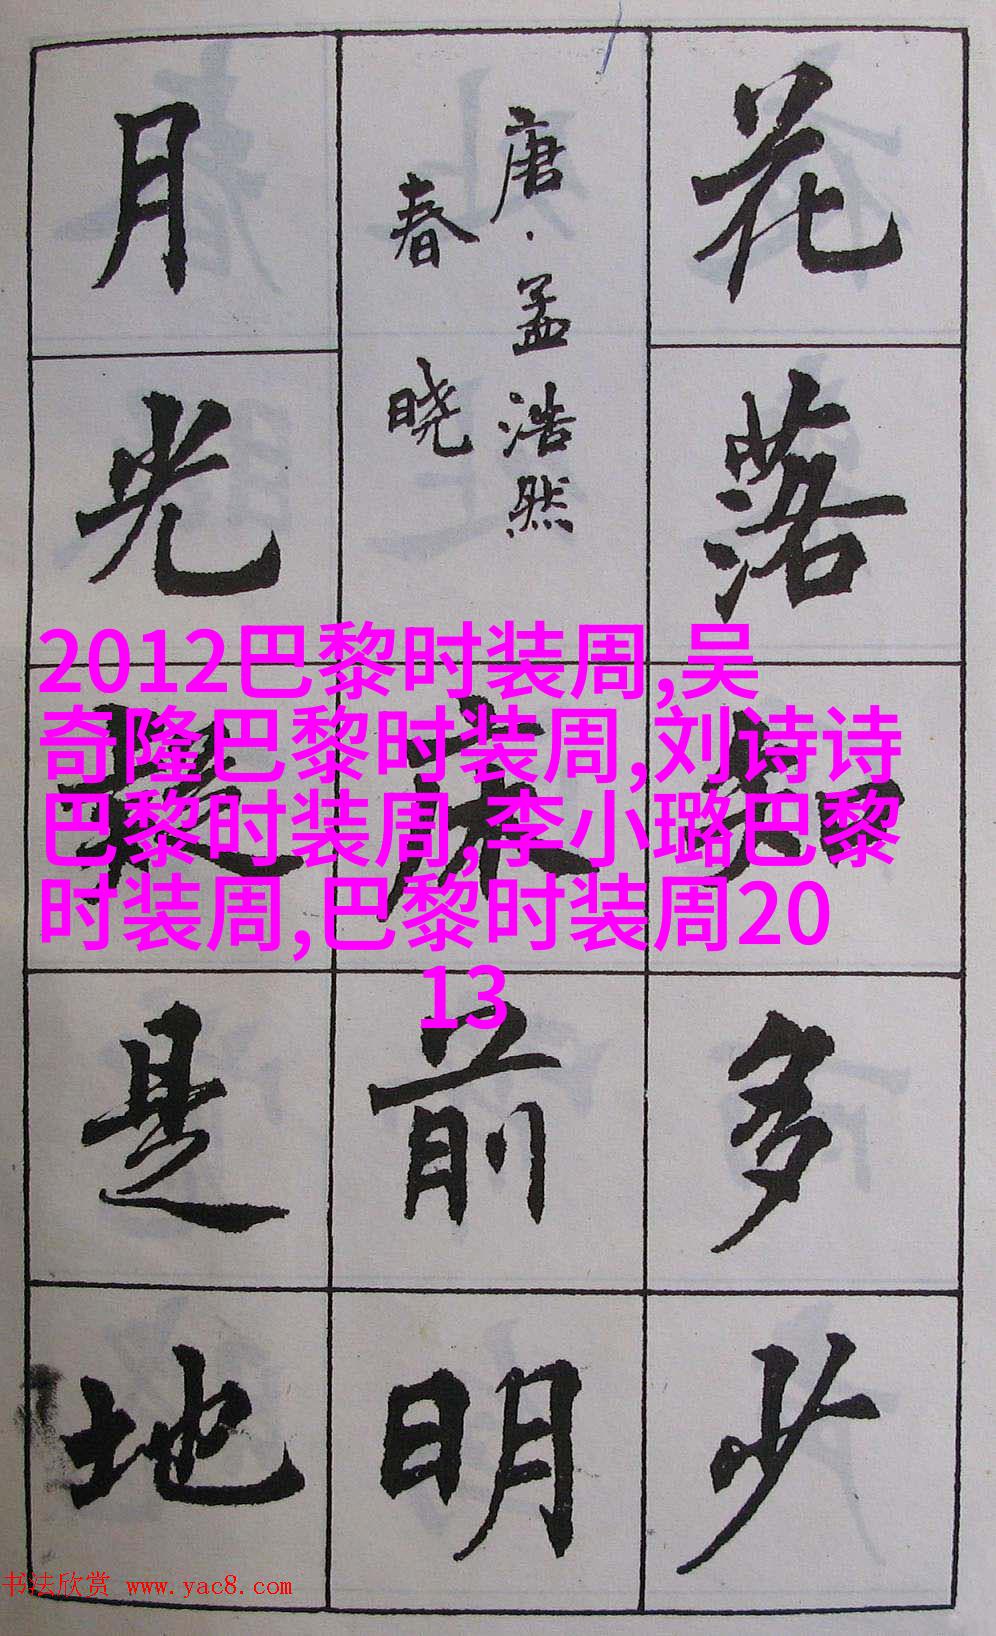 花落知多少
唐·孟浩然
春晓
床前明
月光疑是地
2012巴黎时装周,吴
奇隆巴黎时装周,刘诗诗
巴黎时装周,李小璐巴黎
时装周,巴黎时装周20
13
书法欣赏 www.yac8.com